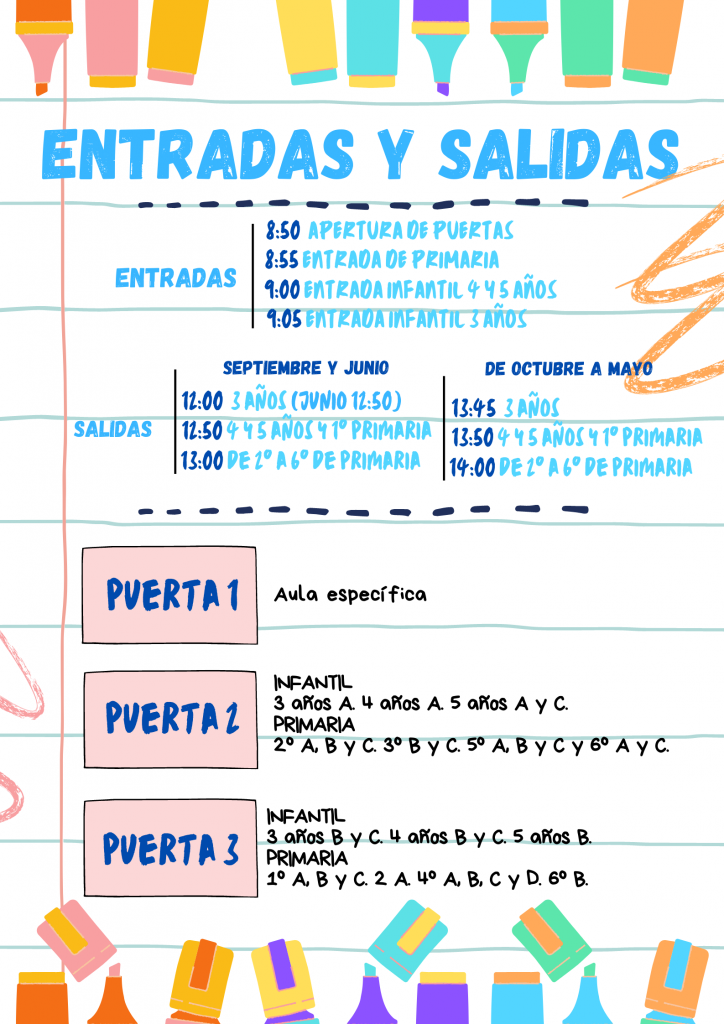 ENTRADAS Y SALIDAS
ENTRADAS
8:50 APERTURA DE PUERTAS
8:55 ENTRADA DE PRIMARIA
9:00 ENTRADA INFANTIL 4 Y 5 AÑOS
9:05 ENTRADA INFANTIL 3 AÑOS
SALIDAS
SEPTIEMBRE Y JUNIO
12:00 3 AÑOS (JUNIO 12:50)
12:50 4 Y 5 AÑOS Y 1º PRIMARIA
13:00 DE 2º A 6º DE PRIMARIA
DE OCTUBRE A MAYO
13:45 3 AÑOS
13:50 4 Y 5 AÑOS Y 1º PRIMARIA
14:00 DE 2º A 6º DE PRIMARIA
PUERTA 1
Aula específica
PUERTA 2
INFANTIL
3 años A. 4 años A. 5 años A y C.
PRIMARIA
2º A, B y C. 3º B y C. 5º A, B y C y 6º A y C.
PUERTA 3
INFANTIL
3 años B y C. 4 años B y C. 5 años B.
PRIMARIA
1º A, B y C. 2 A. 4º A, B, C y D. 6º B.